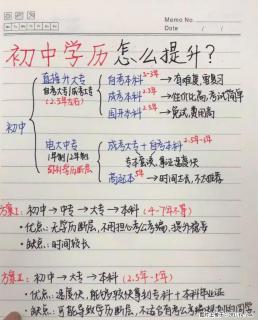 Memo No.
Date / /
初中学历怎么提升?
直接升大专
自考大专/成考大专
(2.5年左右)
自考本科 2-3年 → 有难度,需复习
成考本科 2.5年 → 性价比高,考试简单
国开本科 2.5年 → 免试,费用高
初中
电大中专
1年制/2年制
弥补学历断层
成考大专 + 自考本科 2.5年-3年
专本套读,算还是最快
高起本 5年 → 时间太长,不太推荐
方案1: 初中 → 中专 → 大专 → 本科 (4-7年不等)
·优点: 无学历断层,不用担心考公考编,提升稳专
·缺点: 时间较长
初中 → 大专 → 本科 (2.5年-5年)
·优点: 速度快,能够较快拿到专科+本科毕业证
·缺点: 可能导致学历断层,不适合有考公考编规划的同学